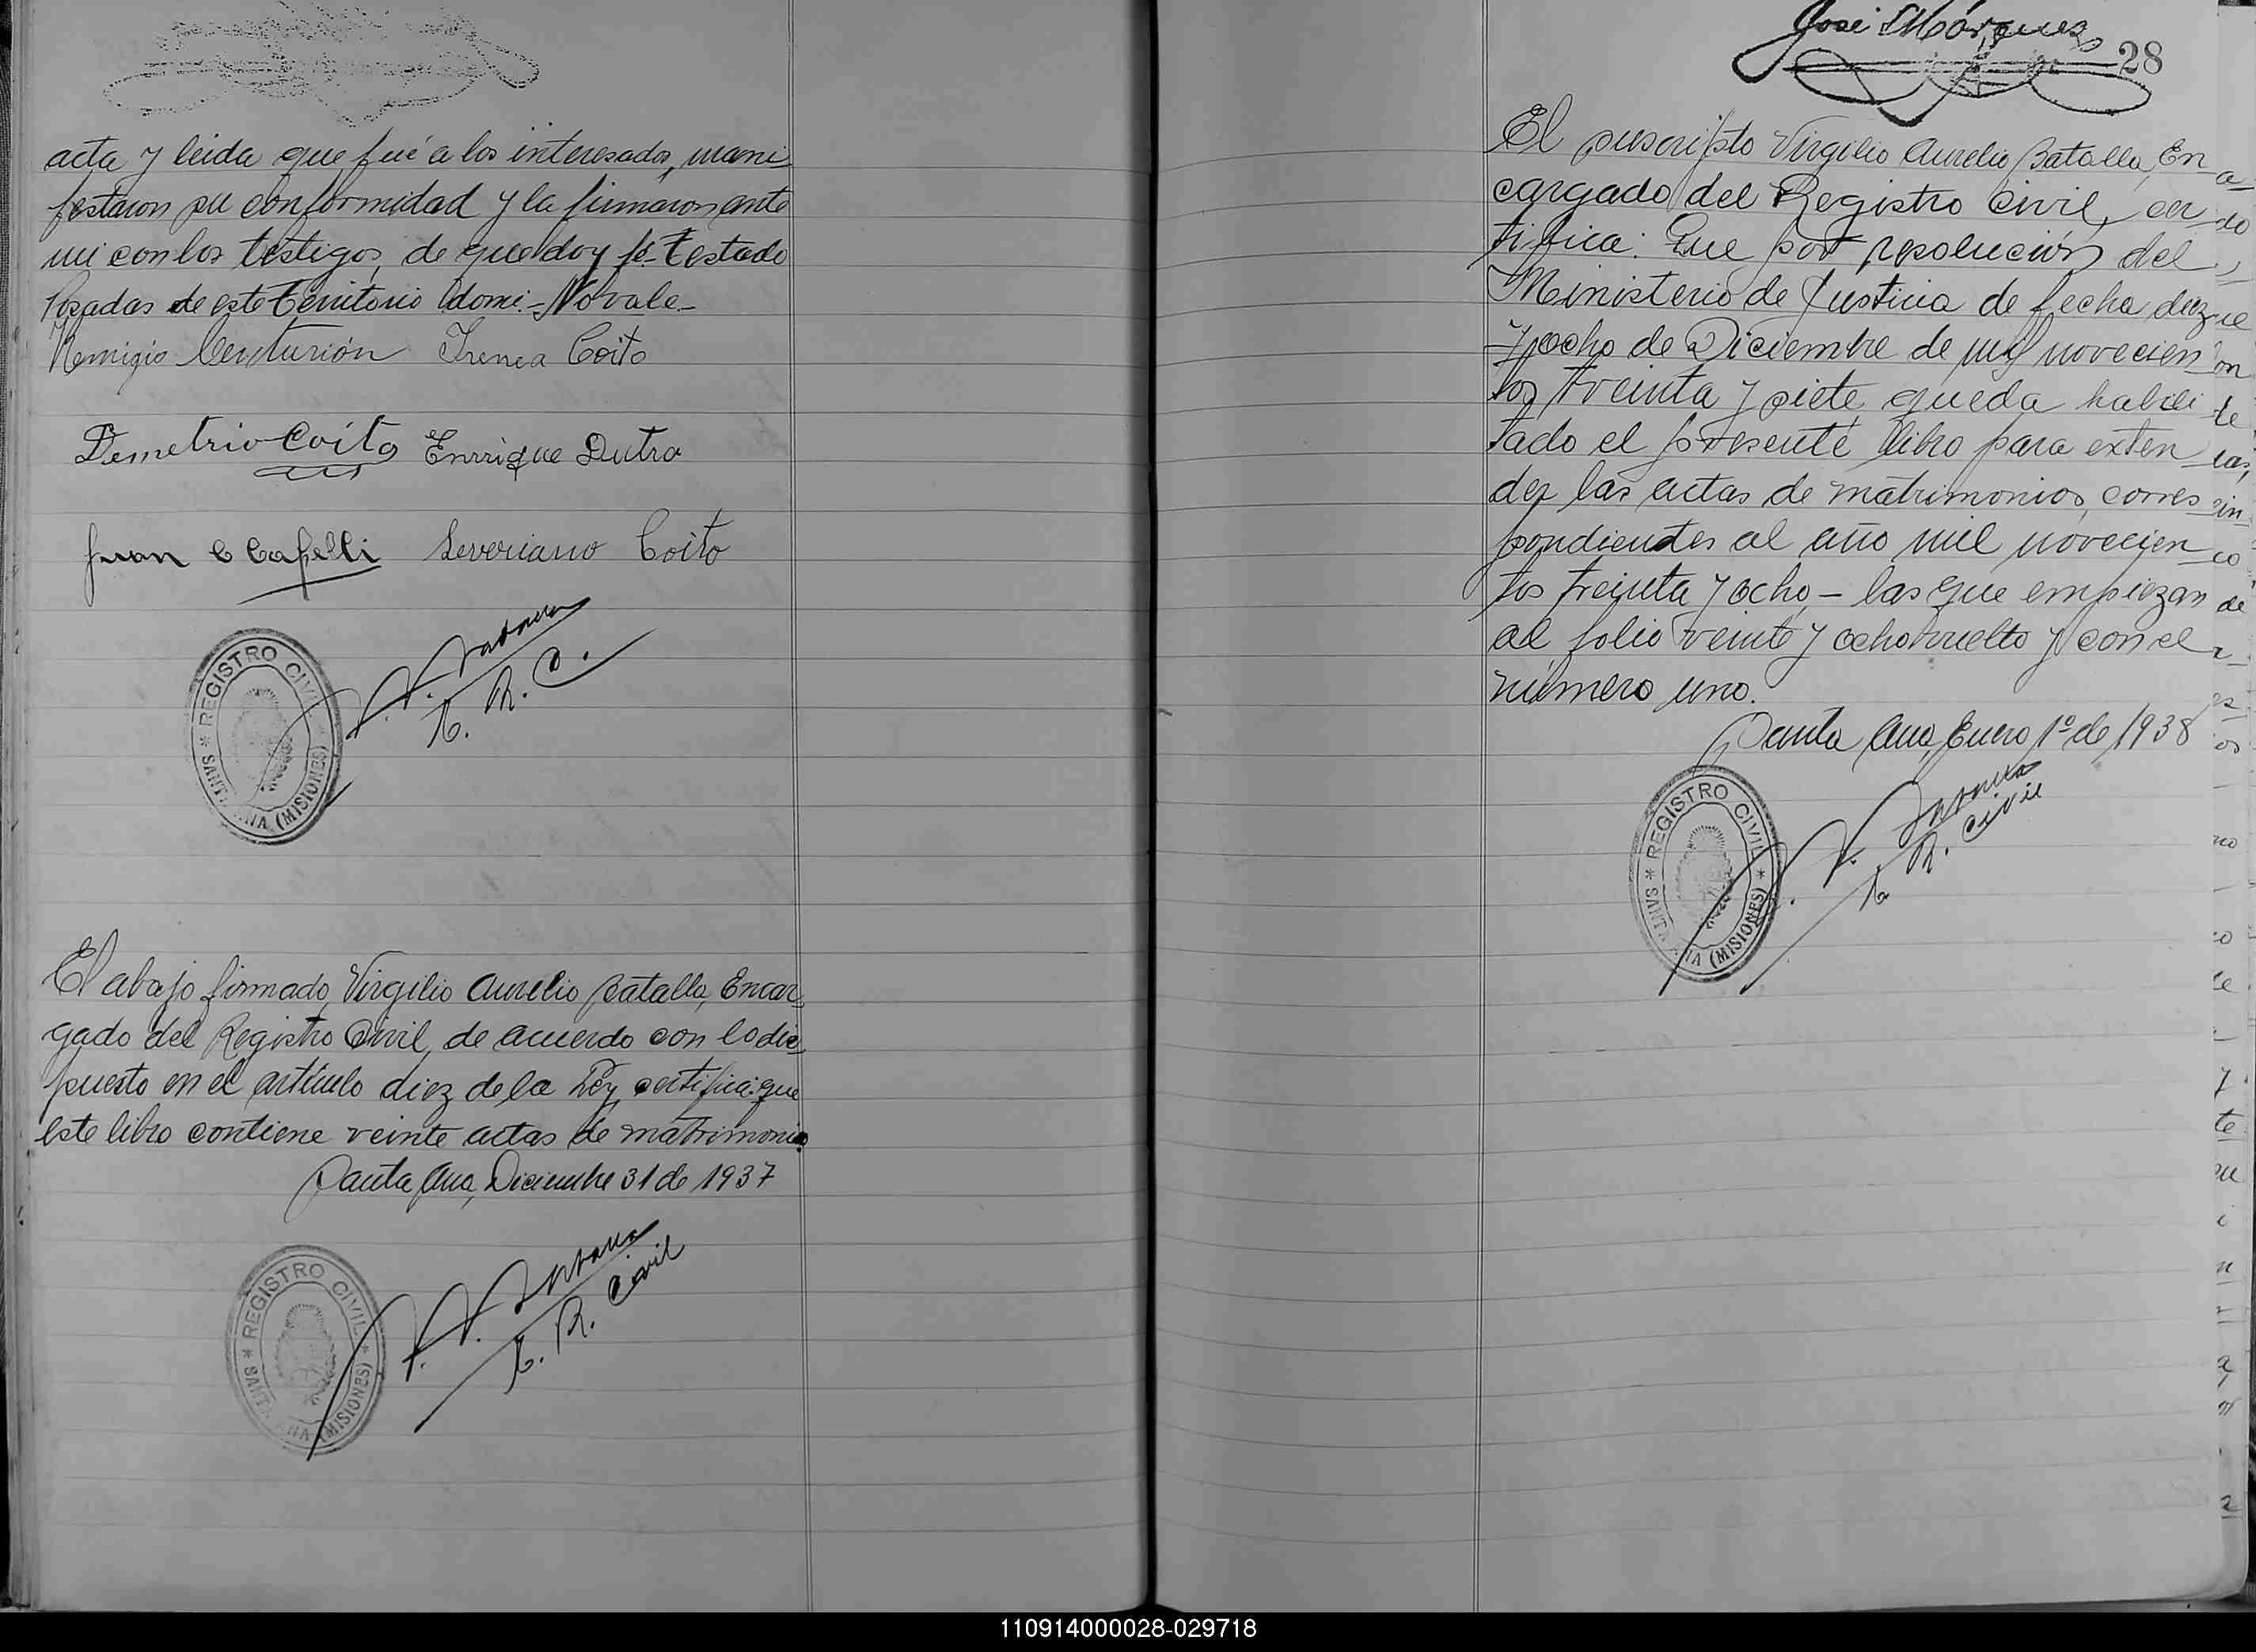 acta y leida que fué a los interesados, mani
festaron su conformidad y la firmaron ante
mi con los testigos, de que doy fé. Testado
Posadas de este territorio domi - No vale -
Remigio Centurión Irenea Coito
Demetrio Coito Enrrique Dutra
Juan C Capelli Severiano Coito
E. R. C.
* REGISTRO CIVIL *
SANTA ANA (MISIONES)
El abajo firmado, Virgilio Aurelio Batalla, Encar
gado del Registro Civil, de acuerdo con lo dis
puesto en el artículo diez de la Ley, certifica: que
este libro contiene veinte actas de matrimonio.
Santa Ana, Diciembre 31 de 1937
E. R. Civil
* REGISTRO CIVIL *
SANTA ANA (MISIONES)
José Márquez
28
El suscripto Virgilio Aurelio Batalla, En
cargado del Registro Civil, cer
tifica: Que por resolución del
Ministerio de Justicia de fecha diez
y ocho de Diciembre de mil novecien
tos treinta y siete, queda habili
tado el presente libro para exten
der las actas de matrimonios, corres
pondientes al año mil novecien
tos treinta y ocho, - las que empiezan
al folio veinte y ocho vuelto y con el
número uno.
Santa Ana, Enero 1º de 1938
E. R. Civil
* REGISTRO CIVIL *
SANTA ANA (MISIONES)
110914000028-029718